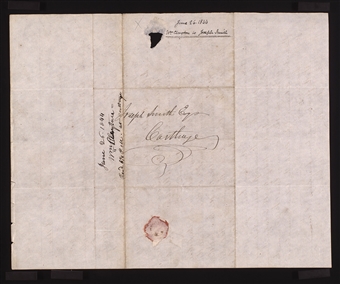 June 26. 1844
Wm Clayton to Joseph Smith
Joseph Smith Esqr
Carthage
June 26. 1844
Wm Clayton